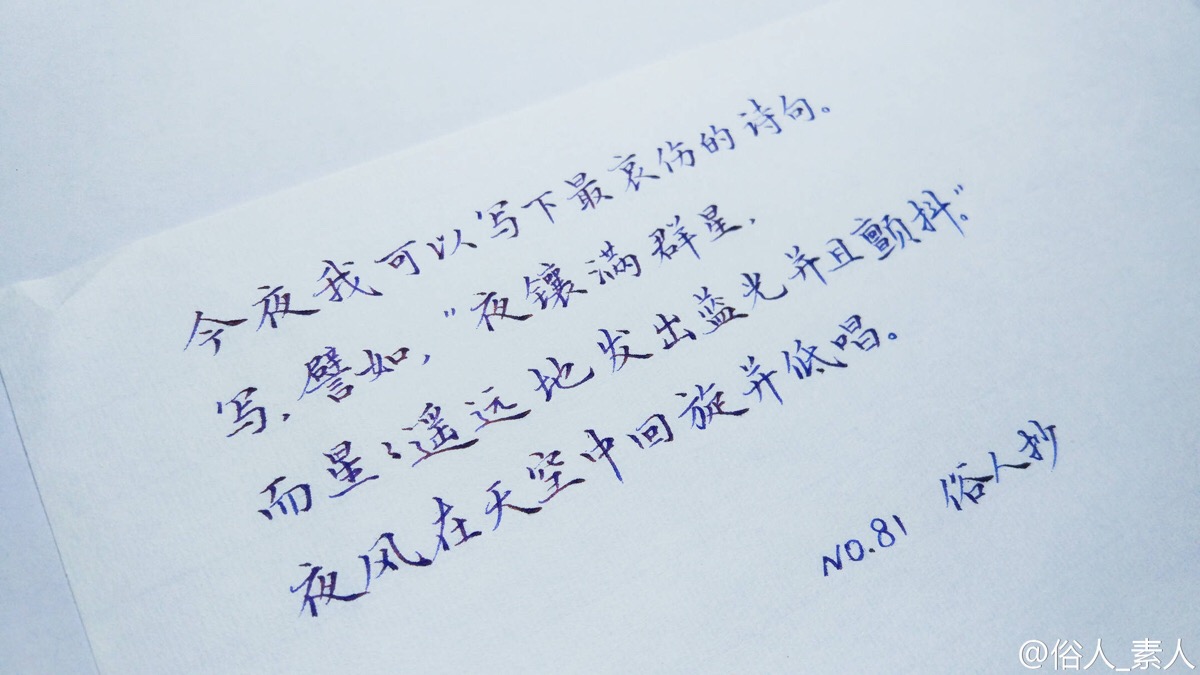 今夜我可以写下最哀伤的诗句。
写,譬如,"夜镶满群星,
而星々遥远地发出蓝光并且颤抖。"
夜风在天空中回旋并低唱。
NO.81 俗人抄
@俗人_素人